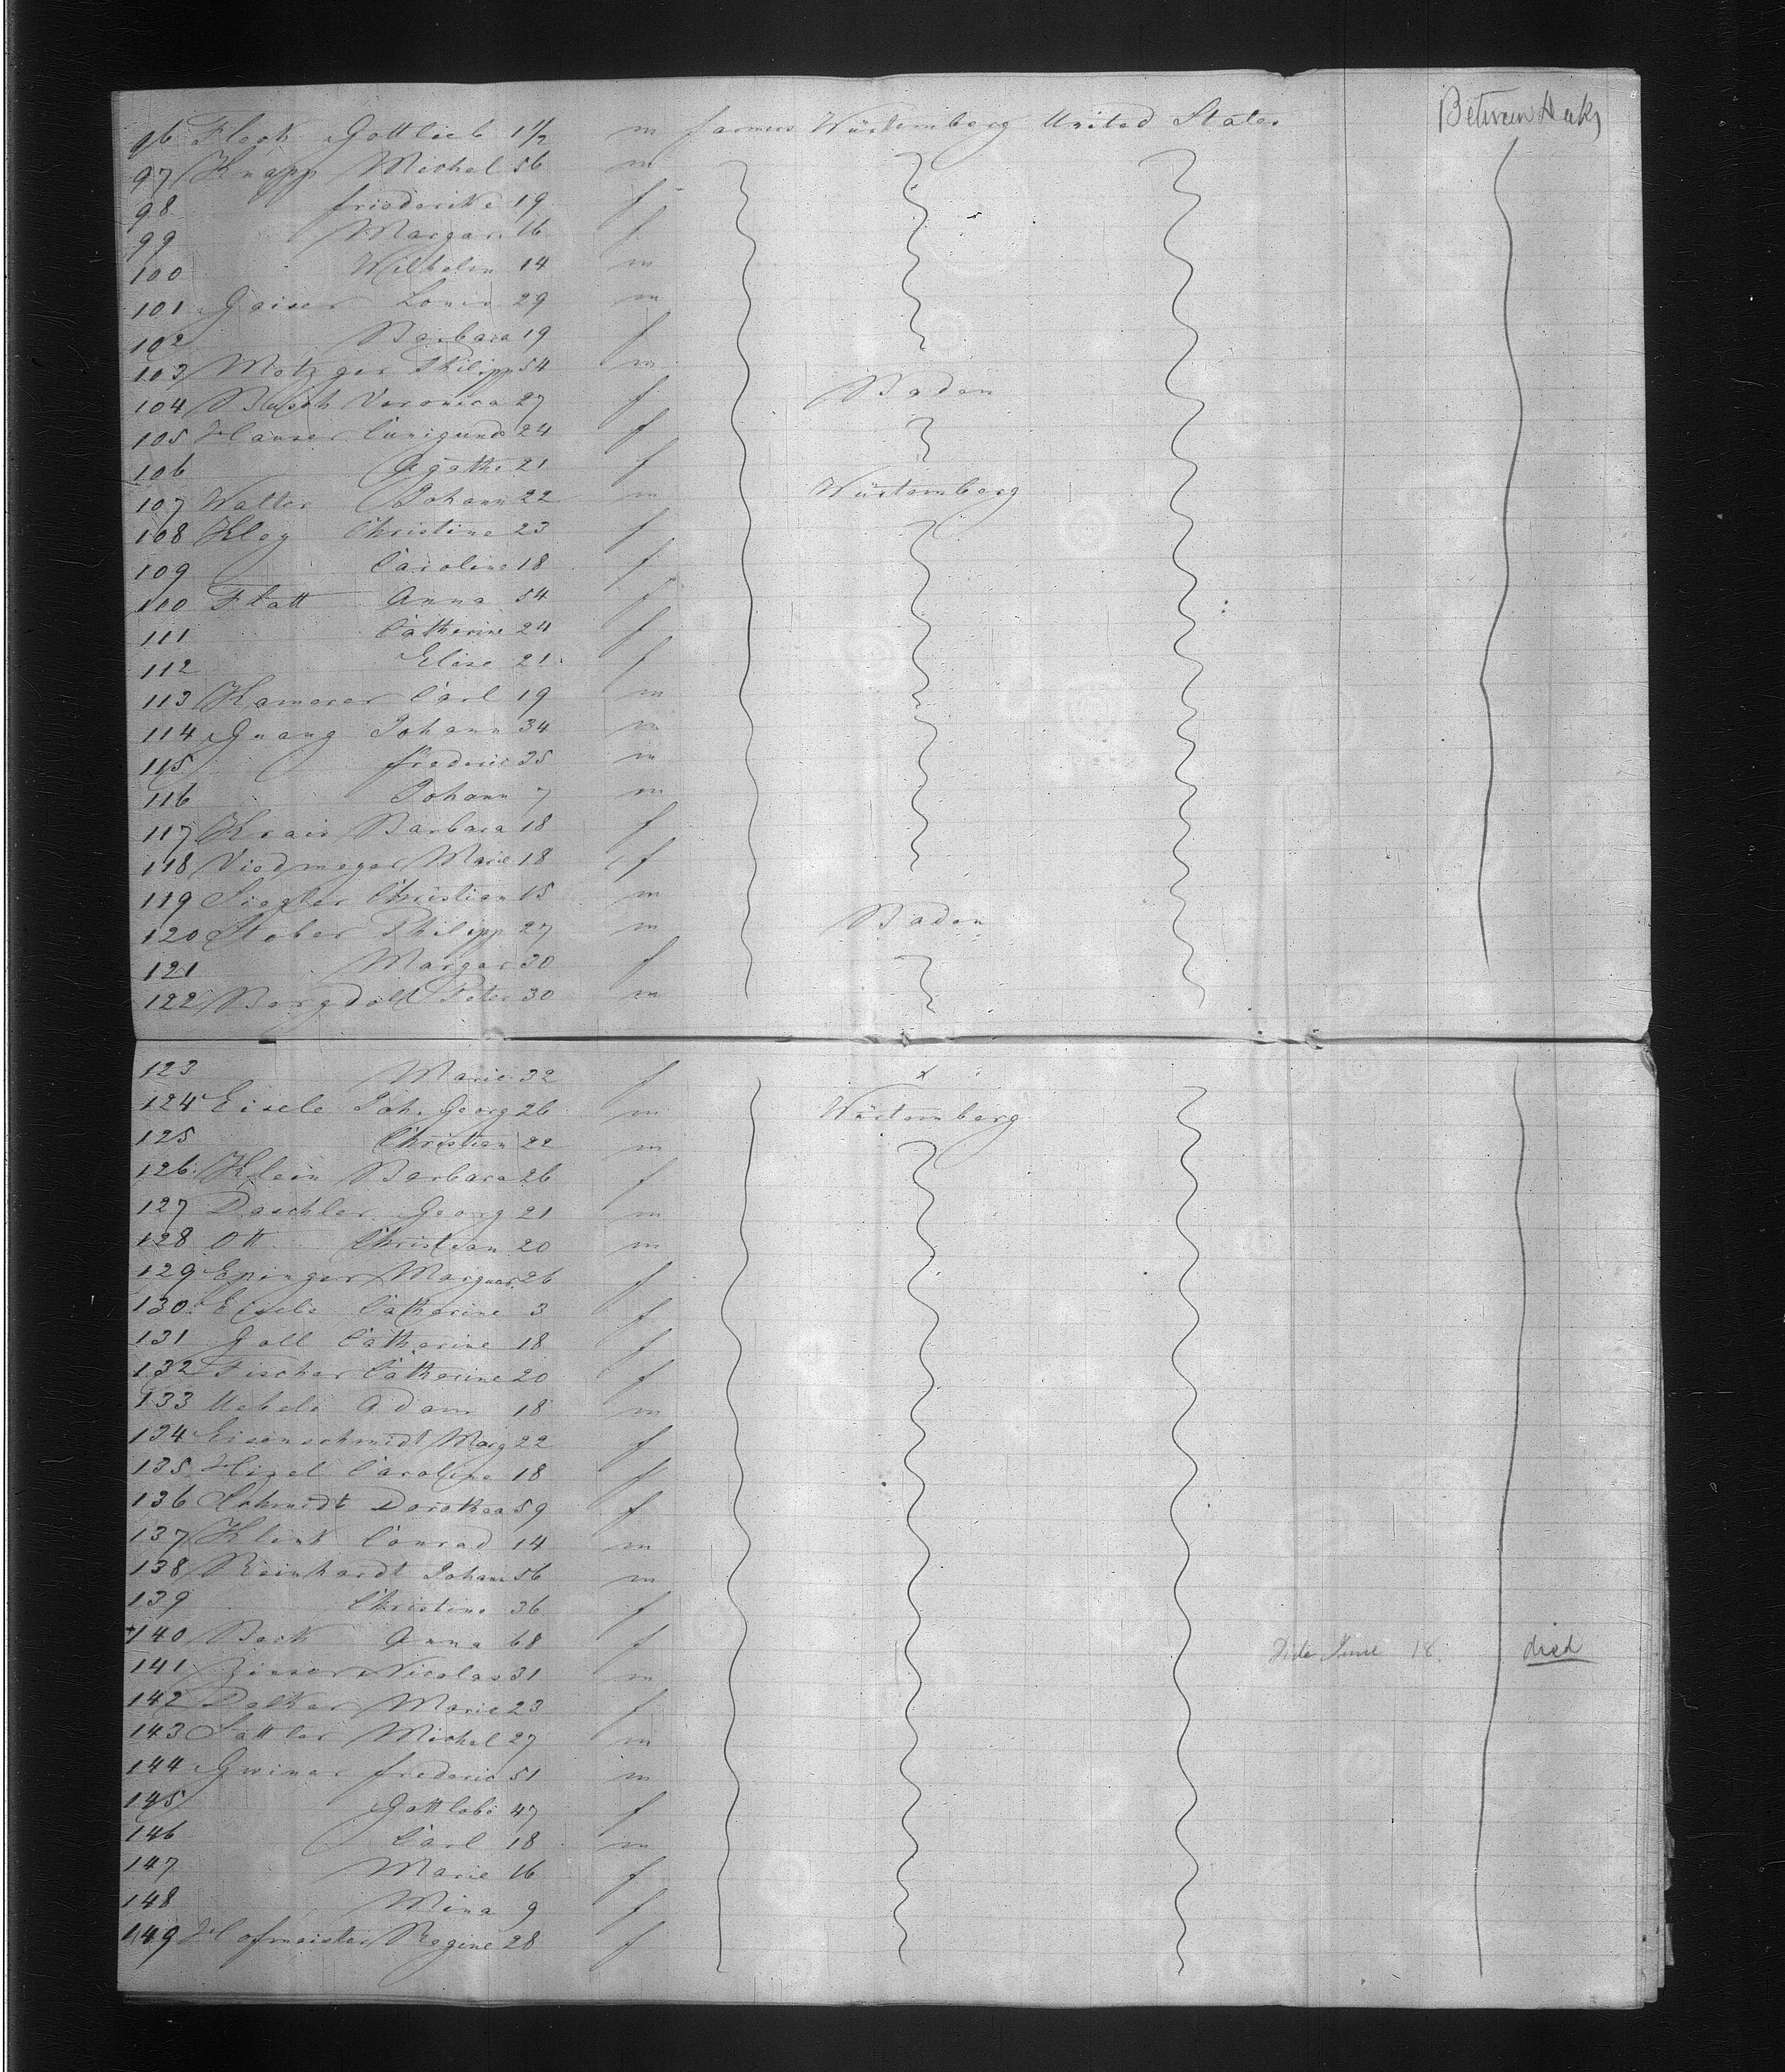 96 Fleck Gottlieb 1 1/2 m farmers Würtemberg United States Between Decks
97 Knapp Michel 56 m
98 friederike 19 f
99 Margar. 16 f
100 Wilhelm 14 m
101 Gaiser Louis 29 m
102 Barbara 19 f
103 Metzger Philipp 54 m
104 Busch Veronica 27 f Baden
105 Hauser Cunigunde 24 f
106 Agathe 21 f
107 Walter Johann 22 m Würtemberg
108 Kley Christine 23 f
109 Caroline 18 f
110 Flatt Anna 54 f
111 Catherine 24 f
112 Elise 21 f
113 Kamerer Carl 19 m
114 Gnang Johann 34 m
115 frederic 35 m
116 Johann 7 m
117 Krais Barbara 18 f
118 Viedmeyer Marie 18 f
119 Siegler Christian 15 m
120 Stober Philipp 27 m Baden
121 Margar 30 f
122 Bergdolt Peter 30 m
123 Marie 32 f
124 Eisele Joh. Georg 26 m Würtemberg
125 Christian 22 m
126 Klein Barbara 26 f
127 Daschler Georg 21 m
128 Ott Christian 20 m
129 Epinger Marguer. 26 f
130 Eisele Catherine 3 f
131 Goll Catherine 18 f
132 Fischer Catherine 20 f
133 Uebele Adam 18 m
134 Eisenschmidt Marg 22 f
135 Hizel Caroline 18 f
136 Schmidt Dorothea 59 f
137 Klink Conrad 14 m
138 Reinhardt Johann 56 m
139 Christine 36 f
+140 Beck Anna 68 f June 18. died
141 Zinser Nicolas 31 m
142 Delker Marie 23 f
143 Sattler Michel 27 m
144 Gwiner frederic 51 m
145 Gottlobi 47 f
146 Carl 18 m
147 Marie 16 f
148 Mina 9 f
149 Hofmeister Regine 28 f